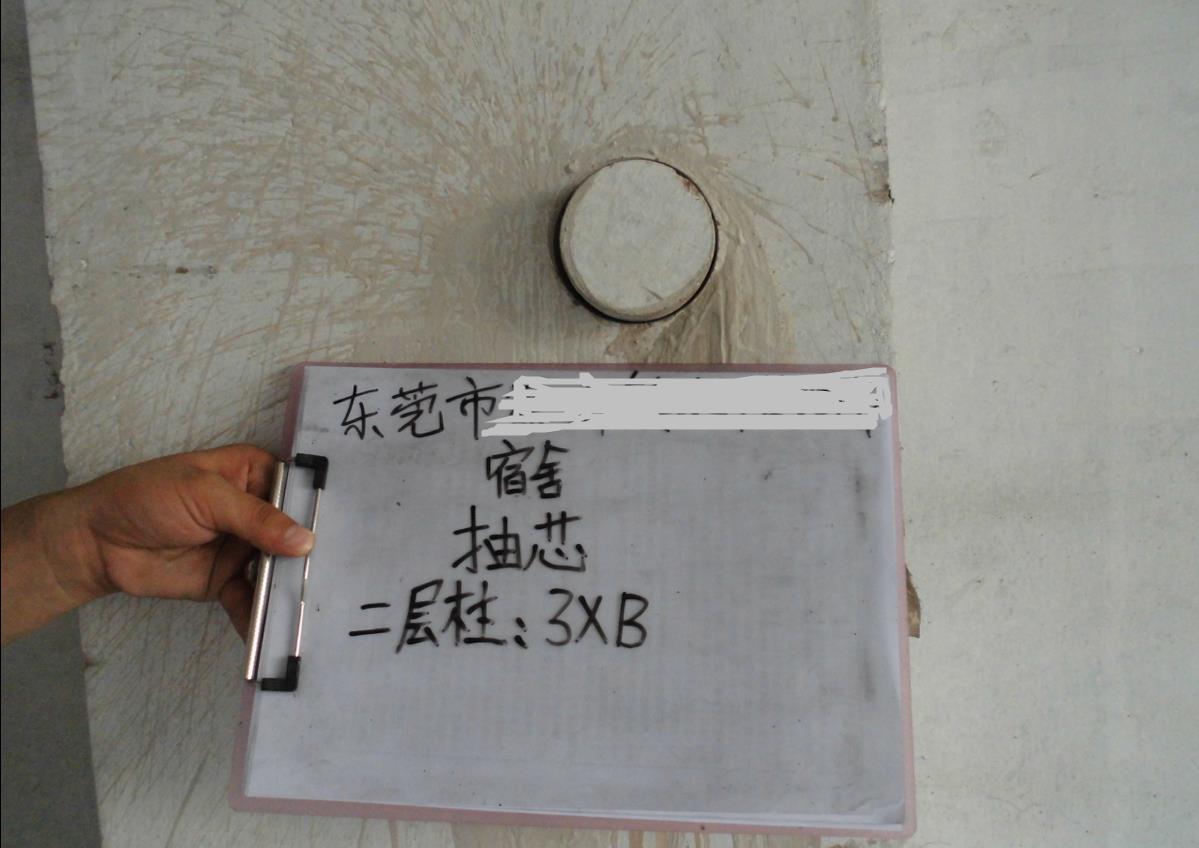 东莞市
宿舍
抽芯
二层柱:3XB